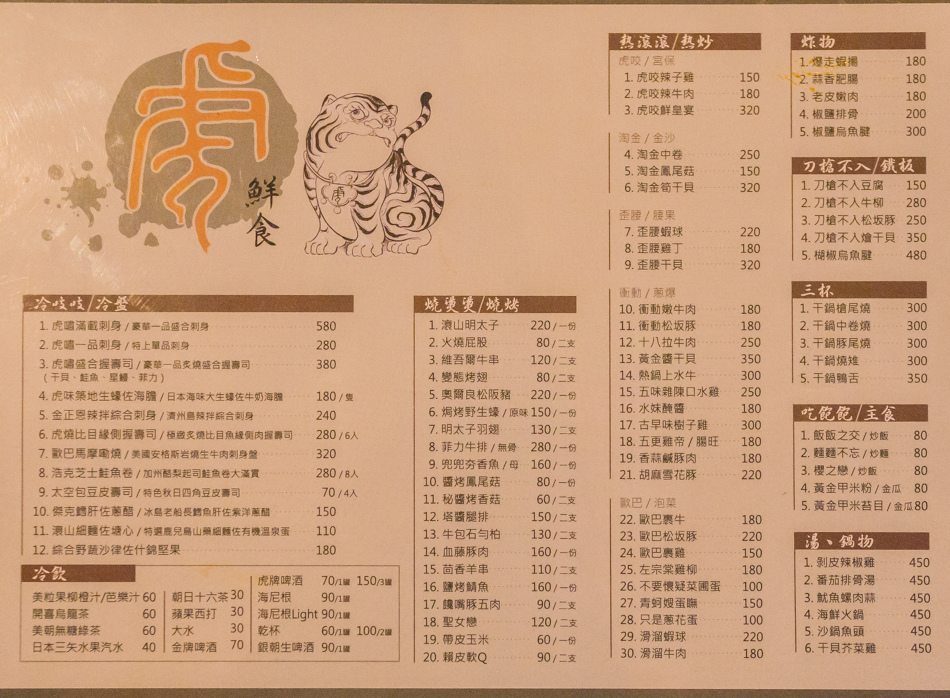 虎
鮮食
冷吱吱/冷盤
1. 虎嘯滿載刺身 / 豪華一品盛合刺身 580
2. 虎嘯一品刺身 / 特上單品刺身 280
3. 虎嘯盛合握壽司 / 豪華一品炙燒盛合握壽司 380
(干貝、鮭魚、星鰻、菲力)
4. 虎味築地生蠔佐海膽 / 日本海味大生蠔佐牛奶海膽 180 / 隻
5. 金正恩辣拌綜合刺身 / 濟州島辣拌綜合刺身 240
6. 虎燒比目緣側握壽司 / 極緻炙燒比目魚緣側肉握壽司 280 / 6人
7. 歐巴馬摩嘞燒 / 美國安格斯岩燒生牛肉刺身盤 320
8. 浩克芝士鮭魚卷 / 加州酪梨起司鮭魚卷大滿貫 280 / 8人
9. 太空包豆皮壽司 / 特色秋日四角豆皮壽司 70 / 4人
10. 傑克鱈肝佐蔥醋 / 冰島老船長鱈魚肝佐紫洋蔥醋 150
11. 滾山細麵佐塘心 / 特選鹿兒島山藥細麵佐有機溫泉蛋 110
12. 綜合野蔬沙律佐什錦堅果 180
冷飲
美粒果柳橙汁/芭樂汁 60
開喜烏龍茶 60
美朝無糖綠茶 60
日本三矢水果汽水 40
朝日十六茶 30
蘋果西打 30
大水 30
金牌啤酒 70
虎牌啤酒 70/1罐 150/3罐
海尼根 90/1罐
海尼根Light 90/1罐
乾杯 60/1罐 100/2罐
銀朝生啤酒 90/1罐
燒燙燙/燒烤
1. 滾山明太子 220 / 一份
2. 火燒屁股 80 / 二支
3. 維吾爾牛串 120 / 二支
4. 變態烤翅 80 / 二支
5. 奧爾良松阪豬 220 / 一份
6. 焗烤野生蠔 / 原味 150 / 一份
7. 明太子羽翅 130 / 二支
8. 菲力牛排 / 無骨 280 / 一份
9. 兜兜夯香魚 / 母 160 / 一份
10. 醬烤鳳尾菇 80 / 一份
11. 秘醬烤香菇 60 / 二支
12. 塔醬腿排 150 / 二支
13. 牛包石勻柏 130 / 二支
14. 血藤豚肉 160 / 一份
15. 茴香羊串 110 / 二支
16. 鹽烤鯖魚 160 / 一份
17. 饞嘴豚五肉 90 / 二支
18. 聖女戀 120 / 二支
19. 帶皮玉米 60 / 一份
20. 賴皮軟Q 90 / 二支
熱滾滾/熱炒
虎咬 / 宮保
1. 虎咬辣子雞 150
2. 虎咬辣牛肉 180
3. 虎咬鮮皇宴 320
淘金 / 金沙
4. 淘金中卷 250
5. 淘金鳳尾菇 150
6. 淘金筍干貝 320
歪腰 / 腰果
7. 歪腰蝦球 220
8. 歪腰雞丁 180
9. 歪腰干貝 320
衝動 / 蔥爆
10. 衝動嫩牛肉 180
11. 衝動松坂豚 180
12. 十八拉牛肉 250
13. 黃金醬干貝 350
14. 熱鍋上水牛 300
15. 五味雜陳口水雞 250
16. 水妹醃醬 180
17. 古早味樹子雞 300
18. 五更雞帝 / 腸旺 180
19. 香蒜鹹豚肉 180
21. 胡麻雪花豚 220
歐巴 / 泡菜
22. 歐巴裹牛 180
23. 歐巴松坂豚 220
24. 歐巴裹雞 150
25. 左宗棠雞柳 180
26. 不要懷疑菓圃蛋 100
27. 青蚵嫂蛋嘸 150
28. 只是蔥花蛋 100
29. 滑溜蝦球 220
30. 滑溜牛肉 180
炸物
1. 爆走蝦揚 180
2. 蒜香肥腸 180
3. 老皮嫩肉 180
4. 椒鹽排骨 200
5. 椒鹽烏魚腱 300
刀槍不入/鐵板
1. 刀槍不入豆腐 150
2. 刀槍不入牛柳 280
3. 刀槍不入松坂豚 250
4. 刀槍不入燴干貝 350
5. 椒椒烏魚腱 480
三杯
1. 干鍋槍尾燒 300
2. 干鍋中卷燒 300
3. 干鍋豚尾燒 300
4. 干鍋燒雉 300
5. 干鍋鴨舌 350
吃飽飽/主食
1. 飯飯之交 / 炒飯 80
2. 麵麵不忘 / 炒麵 80
3. 櫻之戀 / 炒飯 80
4. 黃金甲米粉 / 金瓜 80
5. 黃金甲米苔目 / 金瓜 80
湯、鍋物
1. 剝皮辣椒雞 450
2. 番茄排骨湯 450
3. 魷魚螺肉蒜 450
4. 海鮮火鍋 450
5. 沙鍋魚頭 450
6. 干貝芥菜雞 450